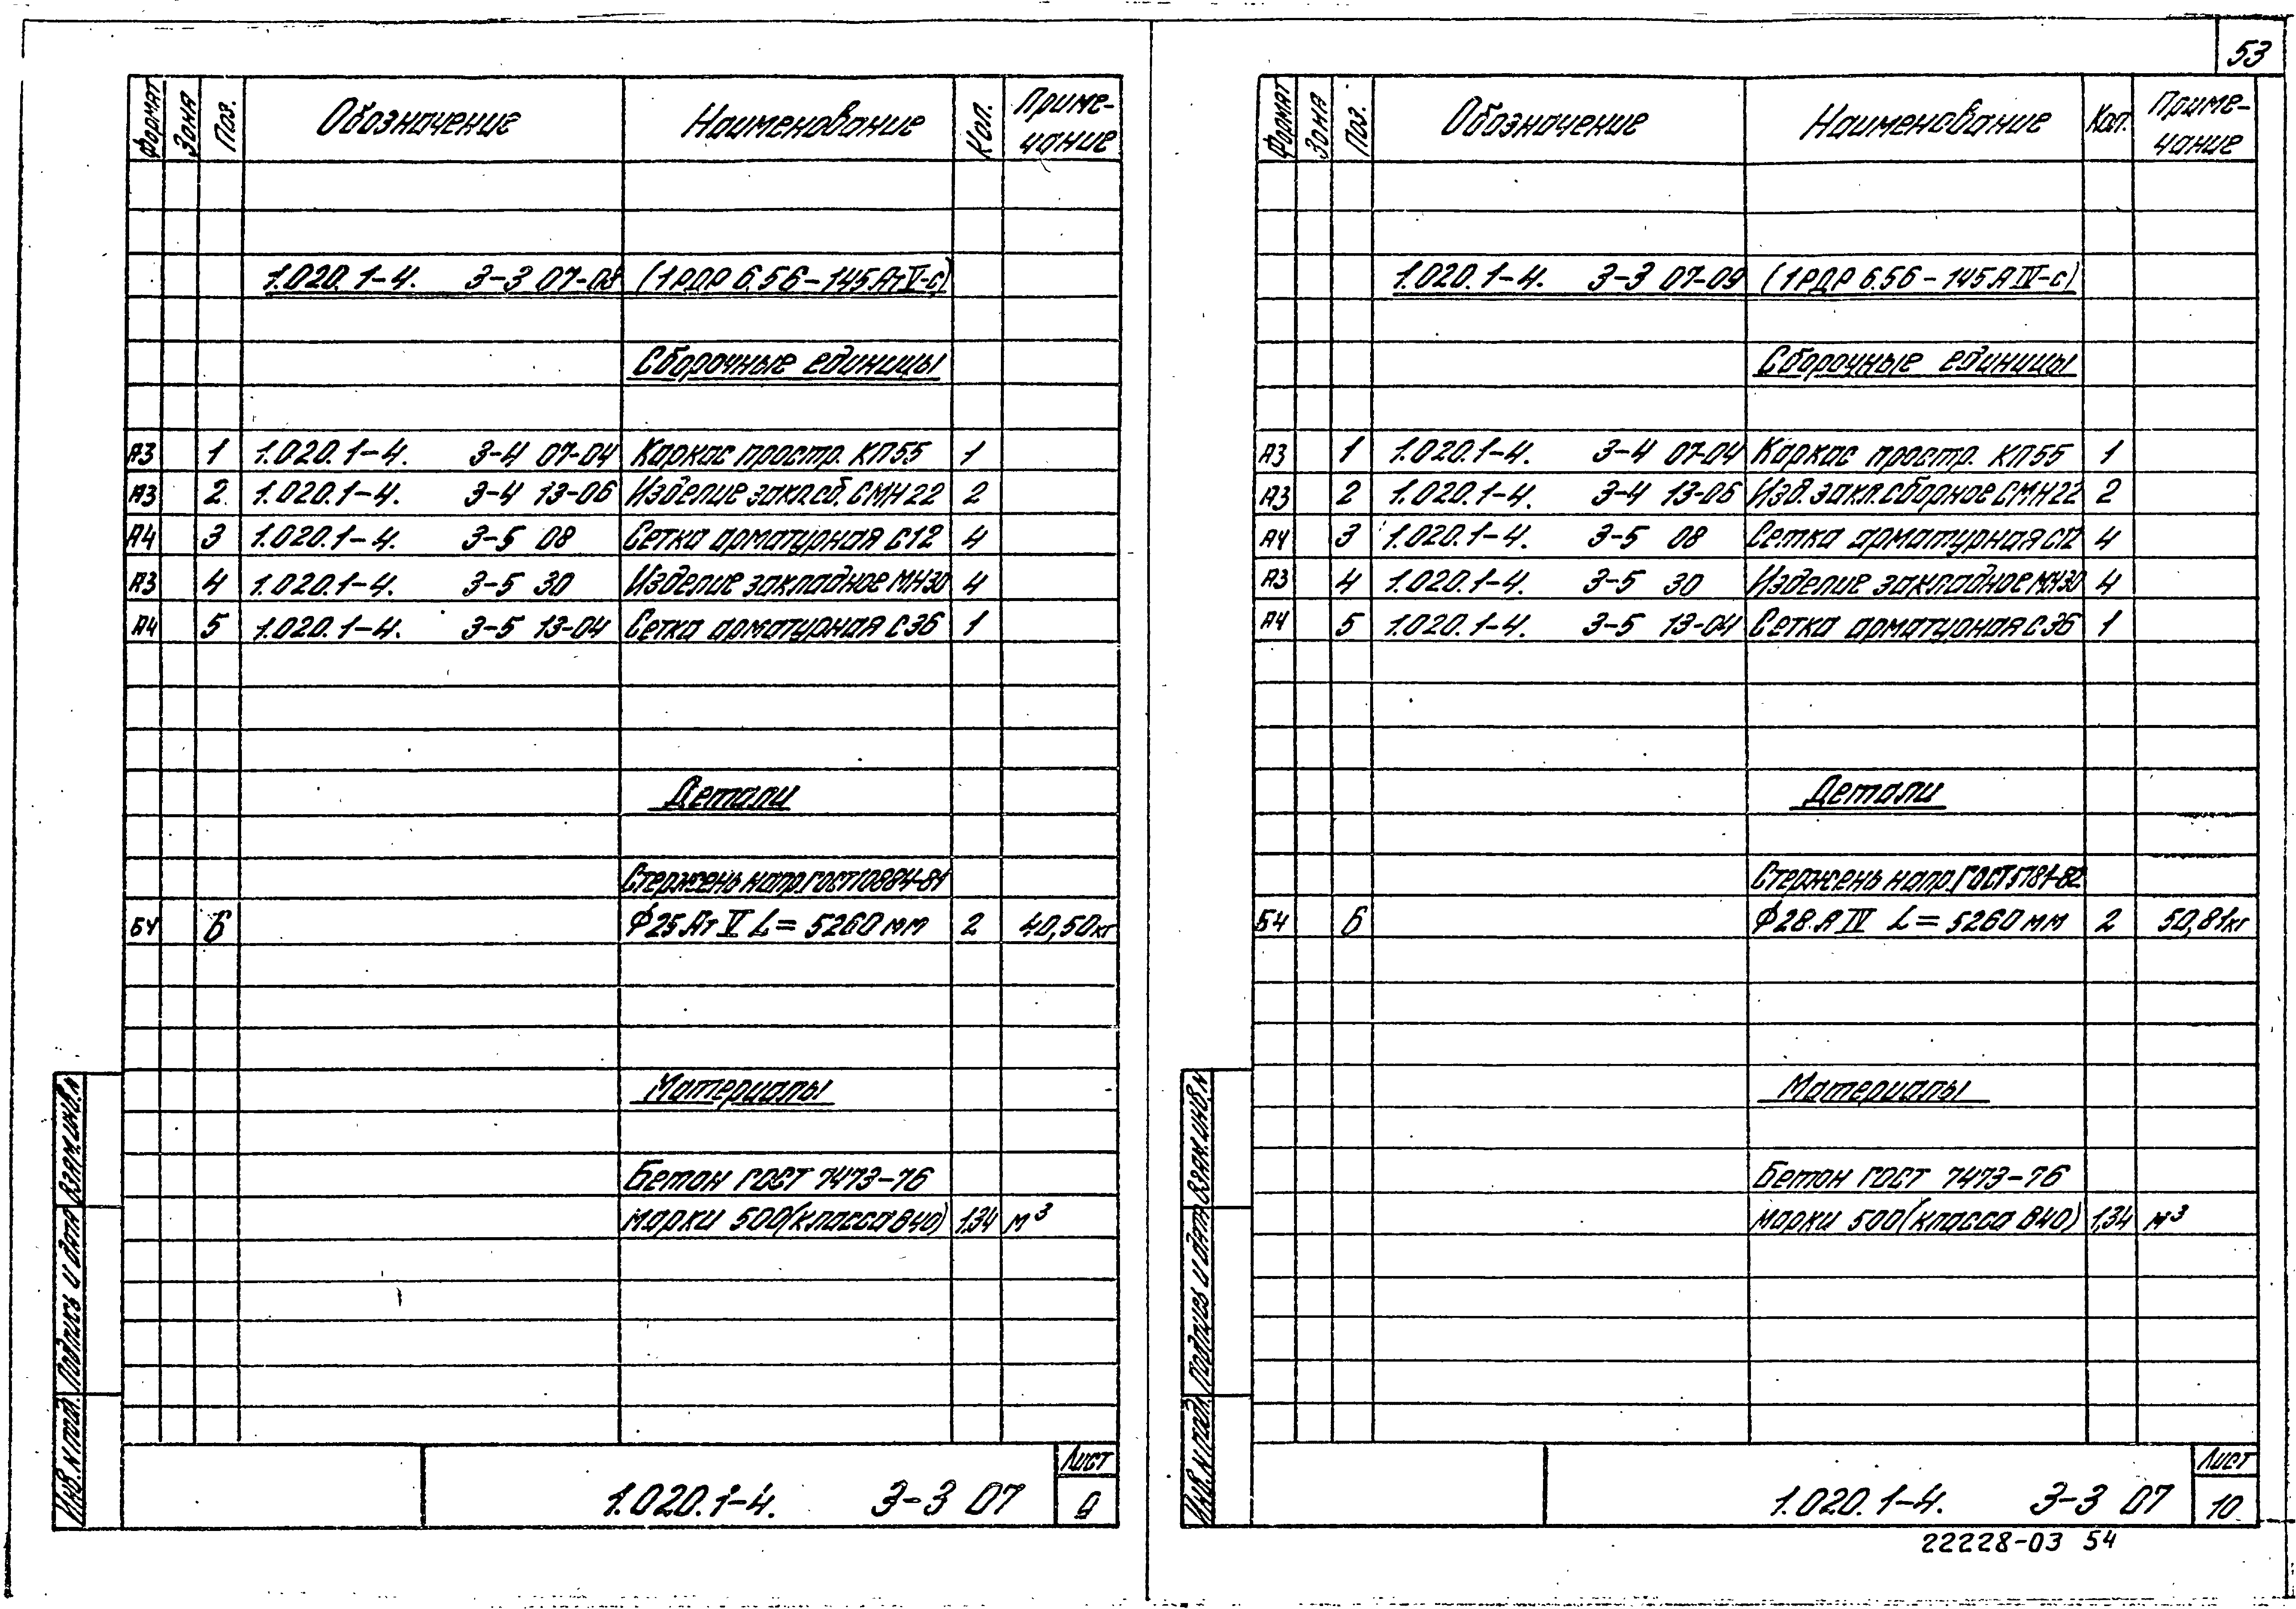 53
Формат Зона Поз. Обозначение Наименование Кол. Приме-
чание
1.020.1-4. 3-3 07-08 (1РДР 6.56-145АтV-С)
Сборочные единицы
А3 1 1.020.1-4. 3-4 07-04 Каркас простр. КП55 1
А3 2 1.020.1-4. 3-4 13-06 Изделие закл.сб. СМН22 2
А4 3 1.020.1-4. 3-5 08 Сетка арматурная С12 4
А3 4 1.020.1-4. 3-5 30 Изделие закладное МН30 4
А4 5 1.020.1-4. 3-5 13-04 Сетка арматурная С36 1
Детали
Стержень напр. ГОСТ10884-81
Б4 6 Ф25 АтV L=5260мм 2 40,50кг
Материалы
Бетон ГОСТ 7473-76
марки 500(класса В40) 1,34 м³
Взам.инв.N
Подпись и дата
Инв.N подл.
1.020.1-4. 3-3 07
Лист
9
Формат Зона Поз. Обозначение Наименование Кол. Приме-
чание
1.020.1-4. 3-3 07-09 (1РДР 6.56-145АIV-С)
Сборочные единицы
А3 1 1.020.1-4. 3-4 07-04 Каркас простр. КП55 1
А3 2 1.020.1-4. 3-4 13-06 Изд.закл.сборное СМН22 2
А4 3 1.020.1-4. 3-5 08 Сетка арматурная С12 4
А3 4 1.020.1-4. 3-5 30 Изделие закладное МН30 4
А4 5 1.020.1-4. 3-5 13-04 Сетка арматурная С36 1
Детали
Стержень напр. ГОСТ5781-82
Б4 6 Ф28 АIV L=5260мм 2 50,81кг
Материалы
Бетон ГОСТ 7473-76
марки 500(класса В40) 1,34 м³
Взам.инв.N
Подпись и дата
Инв.N подл.
1.020.1-4. 3-3 07
Лист
10
22228-03 54